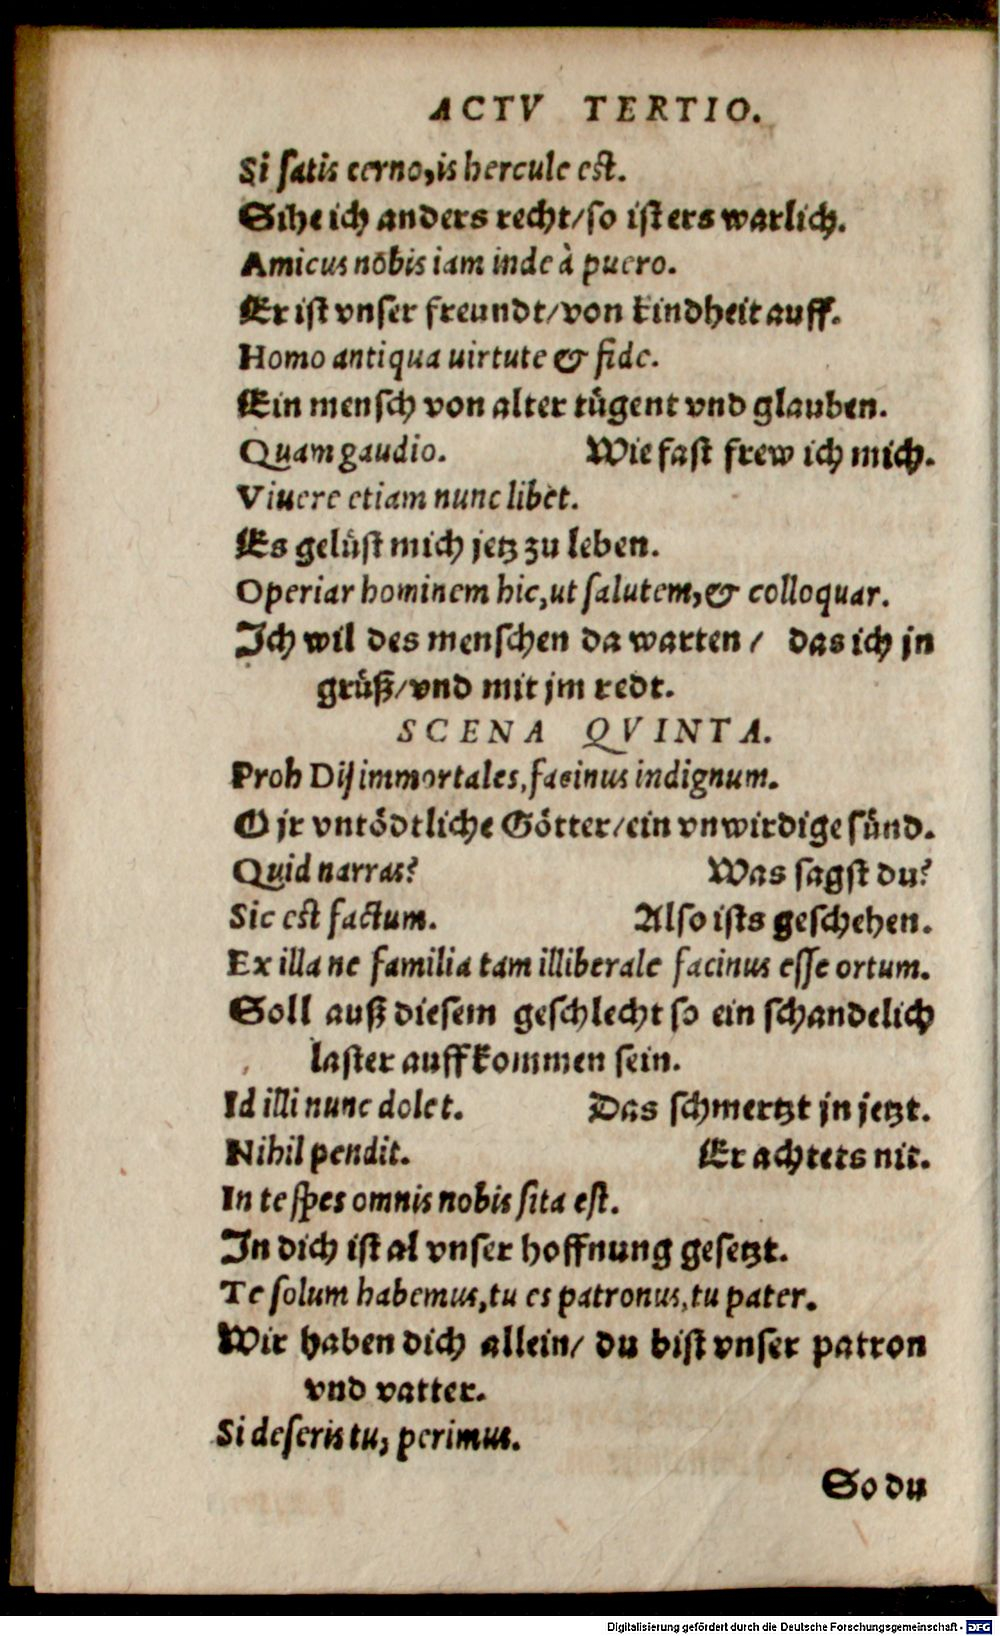 ACTV TERTIO.
Si ſatis cerno, is hercule eſt.
Sihe ich anders recht/ ſo iſt ers warlich.
Amicus nobis iam inde à puero.
Er iſt vnſer freundt/ von kindheit auff.
Homo antiqua uirtute & fide.
Ein menſch von alter tůgent vnd glauben.
Quam gaudio. Wie faſt frew ich mich.
Viuere etiam nunc libet.
Es gelüſt mich jetz zu leben.
Operiar hominem hic, ut ſalutem, & colloquar.
Ich wil des menſchen da warten / das ich jn
grüß/ vnd mit jm redt.
SCENA QVINTA.
Proh Dij immortales, facinus indignum.
O jr vntödtliche Götter/ ein vnwirdige ſünd.
Quid narras? Was ſagſt du?
Sic eſt factum. Alſo iſts geſchehen.
Ex illa ne familia tam illiberale facinus eſſe ortum.
Soll auß dieſem geſchlecht ſo ein ſchandelich
laſter auffkommen ſein.
Id illi nunc dolet. Das ſchmertzt jn jetzt.
Nihil pendit. Er achtets nit.
In te ſpes omnis nobis ſita eſt.
In dich iſt al vnſer hoffnung geſetzt.
Te ſolum habemus, tu es patronus, tu pater.
Wir haben dich allein/ du biſt vnſer patron
vnd vatter.
Si deſeris tu, perimus.
So du
Digitalisierung gefördert durch die Deutsche Forschungsgemeinschaft - DFG